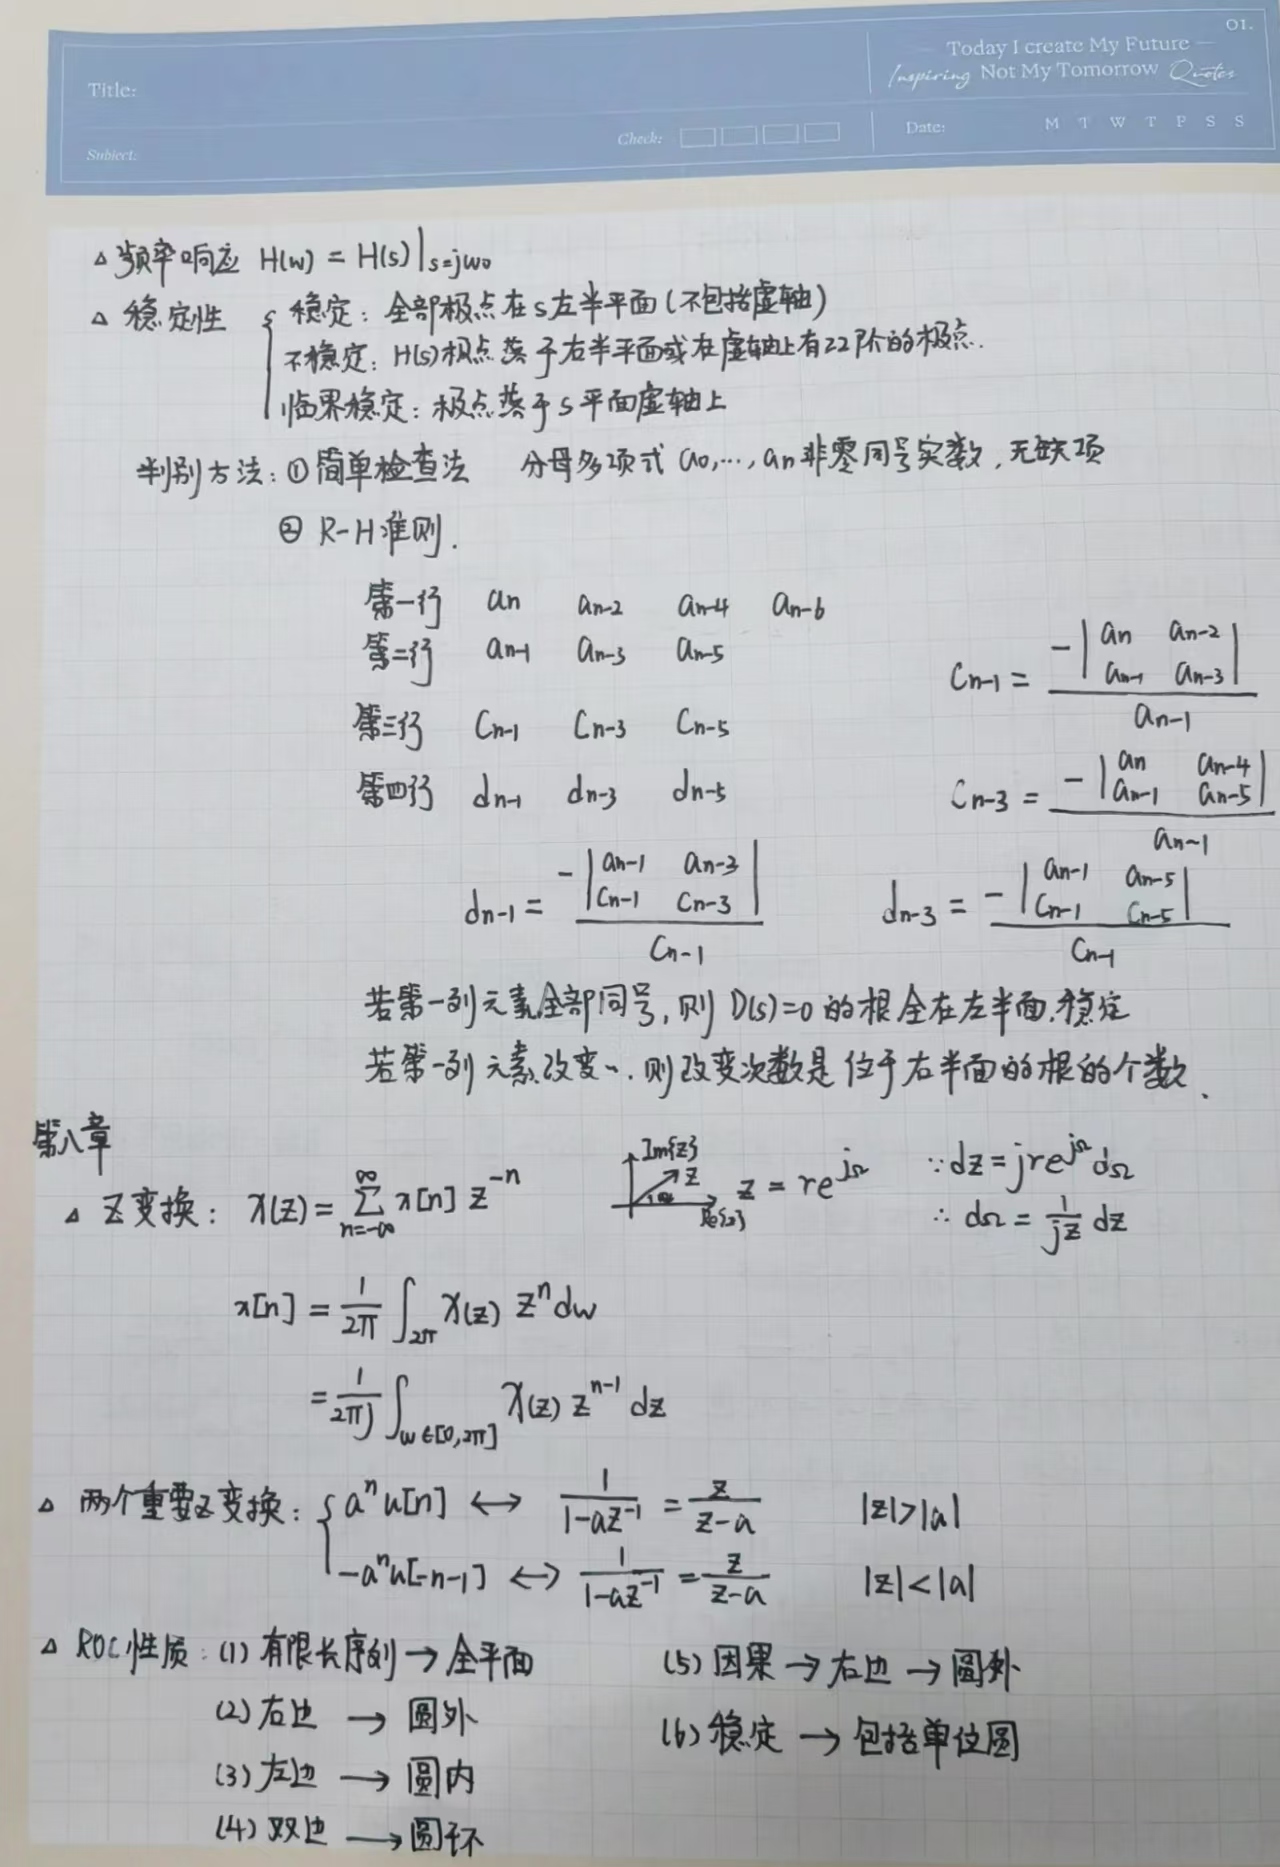 01.
Today I create My Future
Inspiring Not My Tomorrow Quotes
Title:
Check:
Date: M T W T F S S
Subject:
△ 频率响应 H(w) = H(s)|s=jw₀
△ 稳定性 { 稳定：全部极点在s左半平面(不包括虚轴)
不稳定：H(s)极点落于右半平面或在虚轴上有≥2阶的极点.
临界稳定：极点落于s平面虚轴上
判别方法：① 简单检查法 分母多项式 a₀,…,an 非零同号实数，无缺项
② R-H准则.
第一行 an an-2 an-4 an-6
第二行 an-1 an-3 an-5
Cn-1 = -|an an-2; an-1 an-3| / an-1
第三行 Cn-1 Cn-3 Cn-5
第四行 dn-1 dn-3 dn-5
Cn-3 = -|an an-4; an-1 an-5| / an-1
dn-1 = -|an-1 an-3; Cn-1 Cn-3| / Cn-1
dn-3 = -|an-1 an-5; Cn-1 Cn-5| / Cn-1
若第一列元素全部同号，则D(s)=0的根全在左半面，稳定
若第一列元素改变~，则改变次数是位于右半面的根的个数、
第八章
△ Z变换：X(z) = ∑n=-∞^∞ x[n] z^-n
Im{z}
z
Ω
Re{z}
z = re^jΩ
∵ dz = jre^jΩ dΩ
∴ dΩ = 1/jz dz
x[n] = 1/2π ∫2π X(z) z^n dw
= 1/2πj ∫w∈[0,2π] X(z) z^n-1 dz
△ 两个重要Z变换：{ a^n u[n] ↔ 1/(1-az^-1) = z/(z-a) |z|>|a|
-a^n u[-n-1] ↔ 1/(1-az^-1) = z/(z-a) |z|<|a|
△ ROC性质：(1) 有限长序列 → 全平面
(2) 右边 → 圆外
(3) 左边 → 圆内
(4) 双边 → 圆环
(5) 因果 → 右边 → 圆外
(6) 稳定 → 包括单位圆